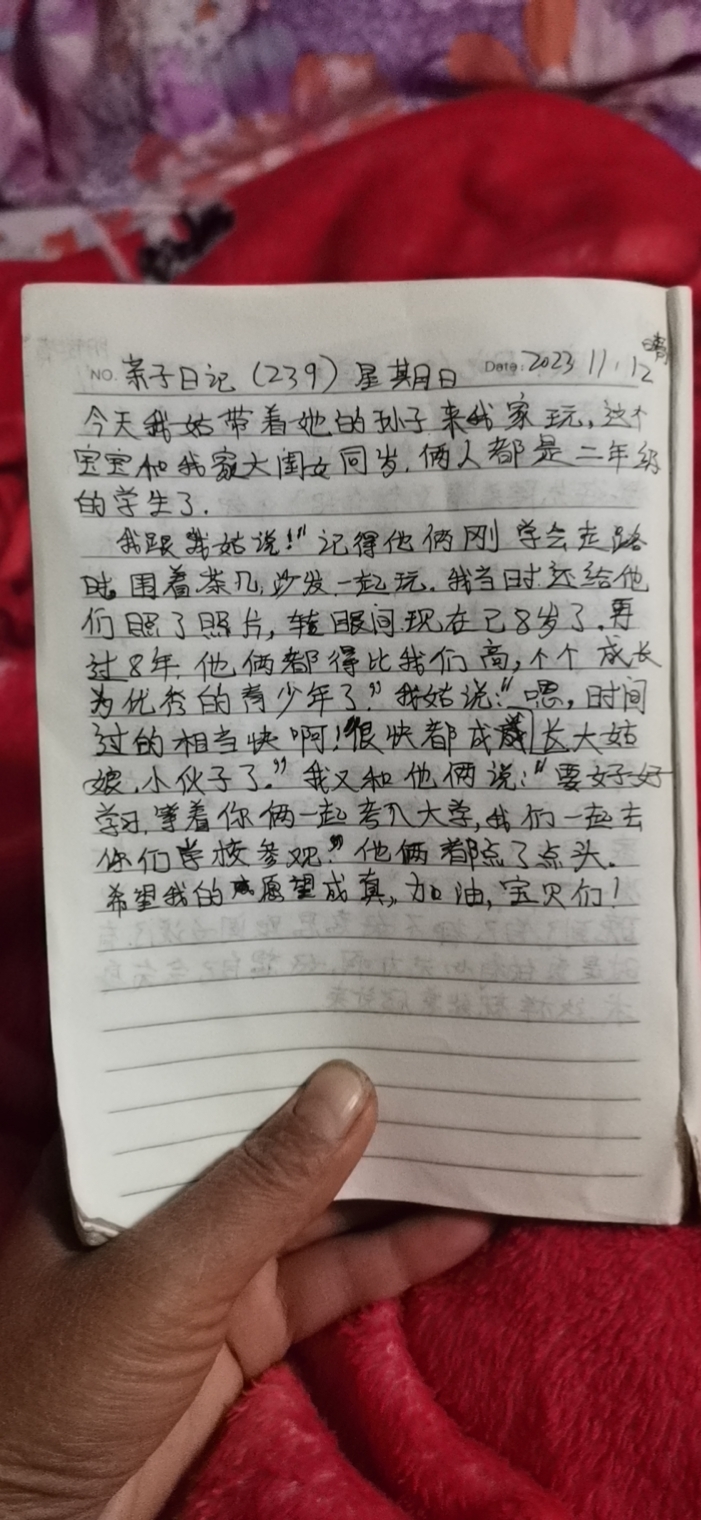 NO. 亲子日记（239）星期日 Date: 2023 11.12 晴
今天我姑带着她的孙子来我家玩，这个
宝宝和我家大闺女同岁，俩人都是二年级
的学生了.
我跟我姑说！“记得他俩刚学会走路
时，围着茶几，沙发一起玩. 我当时还给他
们照了照片，转眼间现在已8岁了. 再
过8年，他俩都得比我们高，个个成长
为优秀的青少年了.”我姑说：“嗯，时间
过的相当快啊！很快都成长大姑
娘，小伙子了.”我又和他俩说：“要好好
学习，等着你俩一起考入大学，我们一起去
你们学校参观.”他俩都点了点头.
希望我的愿望成真，加油，宝贝们！